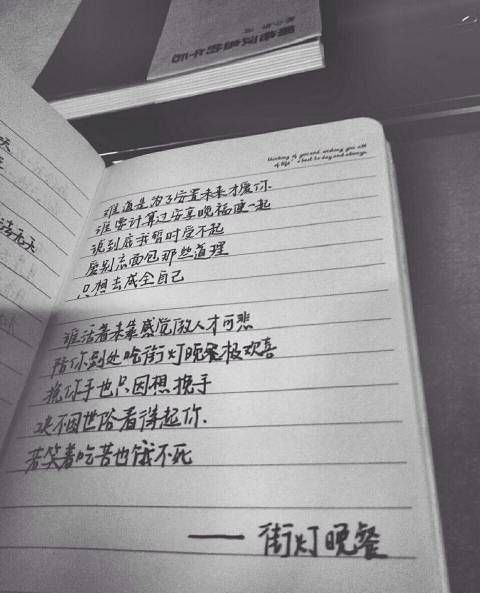 thinking of you and wishing you all
of life's best today and always
难道是为了安置未来才爱你
谁要计算过安享晚福便一起
说到底我暂时受不起
爱别离面包那些道理
只想去成全自己
谁活着未靠感觉做人才可悲
陪你到处吃街灯晚餐极欢喜
挽你手也只因想挽手
决不因世俗看得起你.
若笑着吃苦也饿不死
—— 街灯晚餐